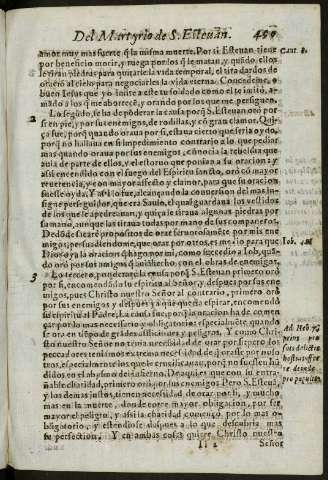 Del Martyrio de S. Esteuan. 450
amor muy mas fuerte q̃ la misma muerte. Por si Esteuan tiene Cant. 8.
por beneficio morir, y ruega por los q̃ le matan, y quãdo ellos
le tiran piedras para quitarle la vida temporal, el tira dardos de
oraciõ al cielo para negociarles la vida eterna. Concedeme, o
buen Iesus que yo imite a este tu soldado como el te imitò, a-
mãdo a los q̃ me aborrecẽ, y orando por los que me persiguẽ.
2 Lo segũdo, se ha de põderar la causa porq̃ S. Esteuan orò por
si en pie, y por sus enemigos, de rodillas, y cõ gran clamor. Qui-
ça fue, porq̃ quando oraua por si, estaua cierto que seria oydo,
porq̃ no hallaua en si impedimento contrario a lo que pedia:
mas quando oraua por sus enemigos, conocia la
aula de parte de ellos, y el estoruo que ponian a su oracion: y
assi encendido con el fuego del Espiritu santo, orò cõ mayor
reuerencia, y con mayor afecto y clamor, para que su oracion
fuesse oyda. Y assi lo fue, alcançando la conuersion del mas in-
signe perseguidor, que era Saulo, el qual guardaua los vestidos
de los que le apedreauan, y quiça le tiraua algunas piedras por
su mano, aunque las tiraua todas por mano de sus compañeros.
De dõde sacarè proposito de orar feruorosamente por mis ene-
migos, persuadiendome, que orar por otros, es medio para que Iob. 42.
Dios oyga la oracion q̃ hago por mi, como sucedio a Iob, quãdo
orò por sus amigos
3 Lo tercero, ponderarè la causa porq̃ S. Esteuan primero orò
por si, encomendãdo su espiritu al Señor, y despues por sus ene-
migos, pues Christo nuestro Señor al contrario, primero orò
por sus enemigos y despues a la que queria espirar, encomendò
su espiritu al Padre. La causa fue, porq̃ la oracion ha de comen-
çar por lo mas necessario y obligatorio: especialmente quando
se ora en supo de grandes aflicciones y peligros. Y como Chri- Ad Heb. 7.
sto nuestro Señor no tenia necesidad de orar por si: pero los prius pro
pecadores teniamos extrema necesidad de q̃ orasse por noso- suis delictis
tros, especialmente los que le crucificauan, porq̃ no fuessen hũ- hostias offer-
didos en el abismo del infierno. De aqui es que con su entra- re deinde
ñable charidad, primero orò por sus enemigos. Pero S. Esteuã, pro populi.
y los demas justos, tienen necesidad de orar por si, y mucho
mas en la muerte, donde corre mayor obligacion, por ser
mayor el peligro, y assi la charidad comiença por lo mas o-
bligatorio, y estiendese despues a lo que descubria mas
su perfection. Y en ambas cosas quiere Christo nuestro
Señor